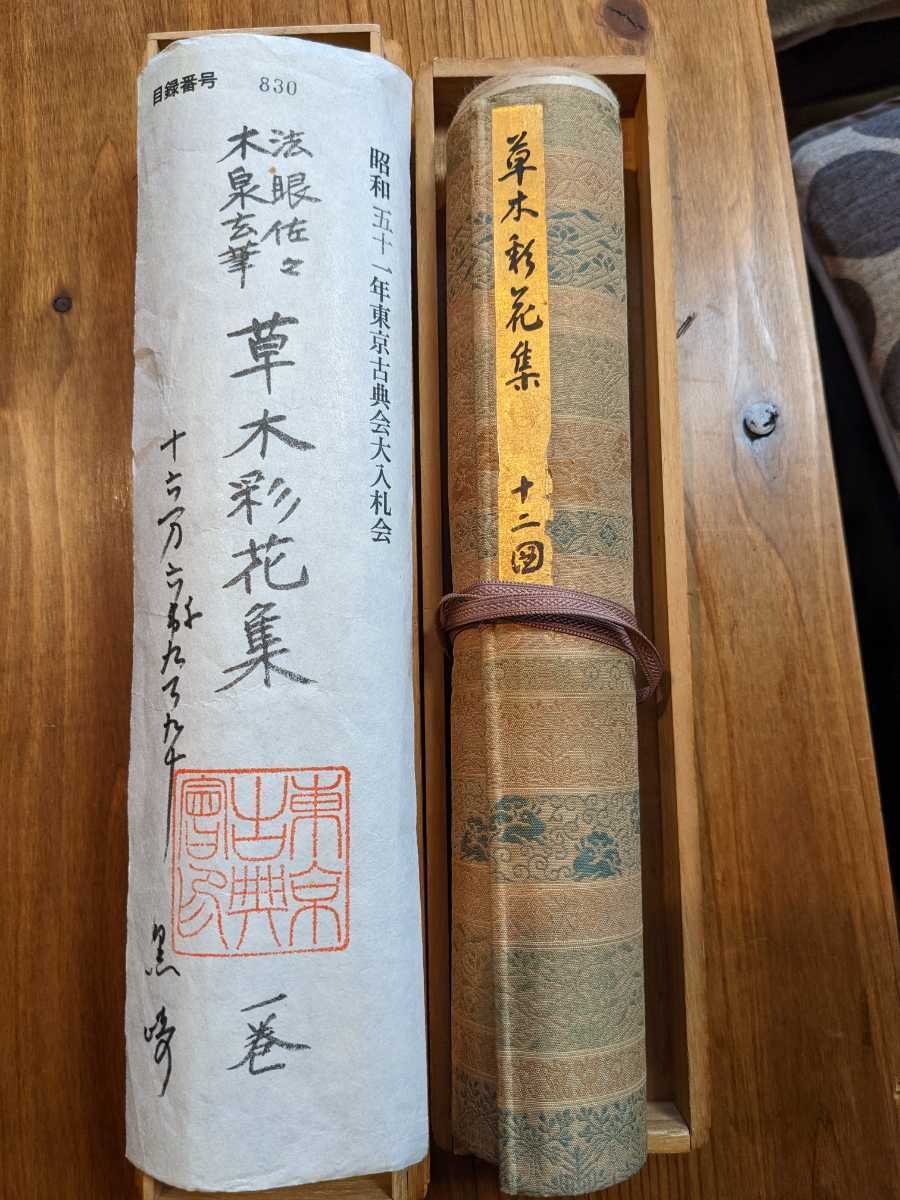 目録番号 830
昭和五十一年東京古典会大入札会
法眼佐々
木泉玄筆
草木彩花集
一巻
十六万六千九百九十
黒崎
東京
古典
會印
草木彩花集 十二図